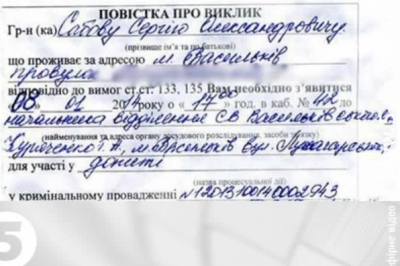 ПОВІСТКА ПРО ВИКЛИК
Гр-н (ка) Сабову Сергію Олександровичу
(прізвище ім'я та по батькові)
що проживає за адресою м. Васильків
провулок
відповідно до вимог ст.ст: 133, 135 Вам необхідно з'явитися
08. 01 2014 року о «17⁰⁰» год. в каб. № 412 до
начальника відділення СВ Васильків
(найменування та адреса органу досудового розслідування, засоби зв'язку)
м. Васильків вул.
для участі у допиті
(назва процесуальної дії)
у кримінальному провадженні №12013100140002943
5